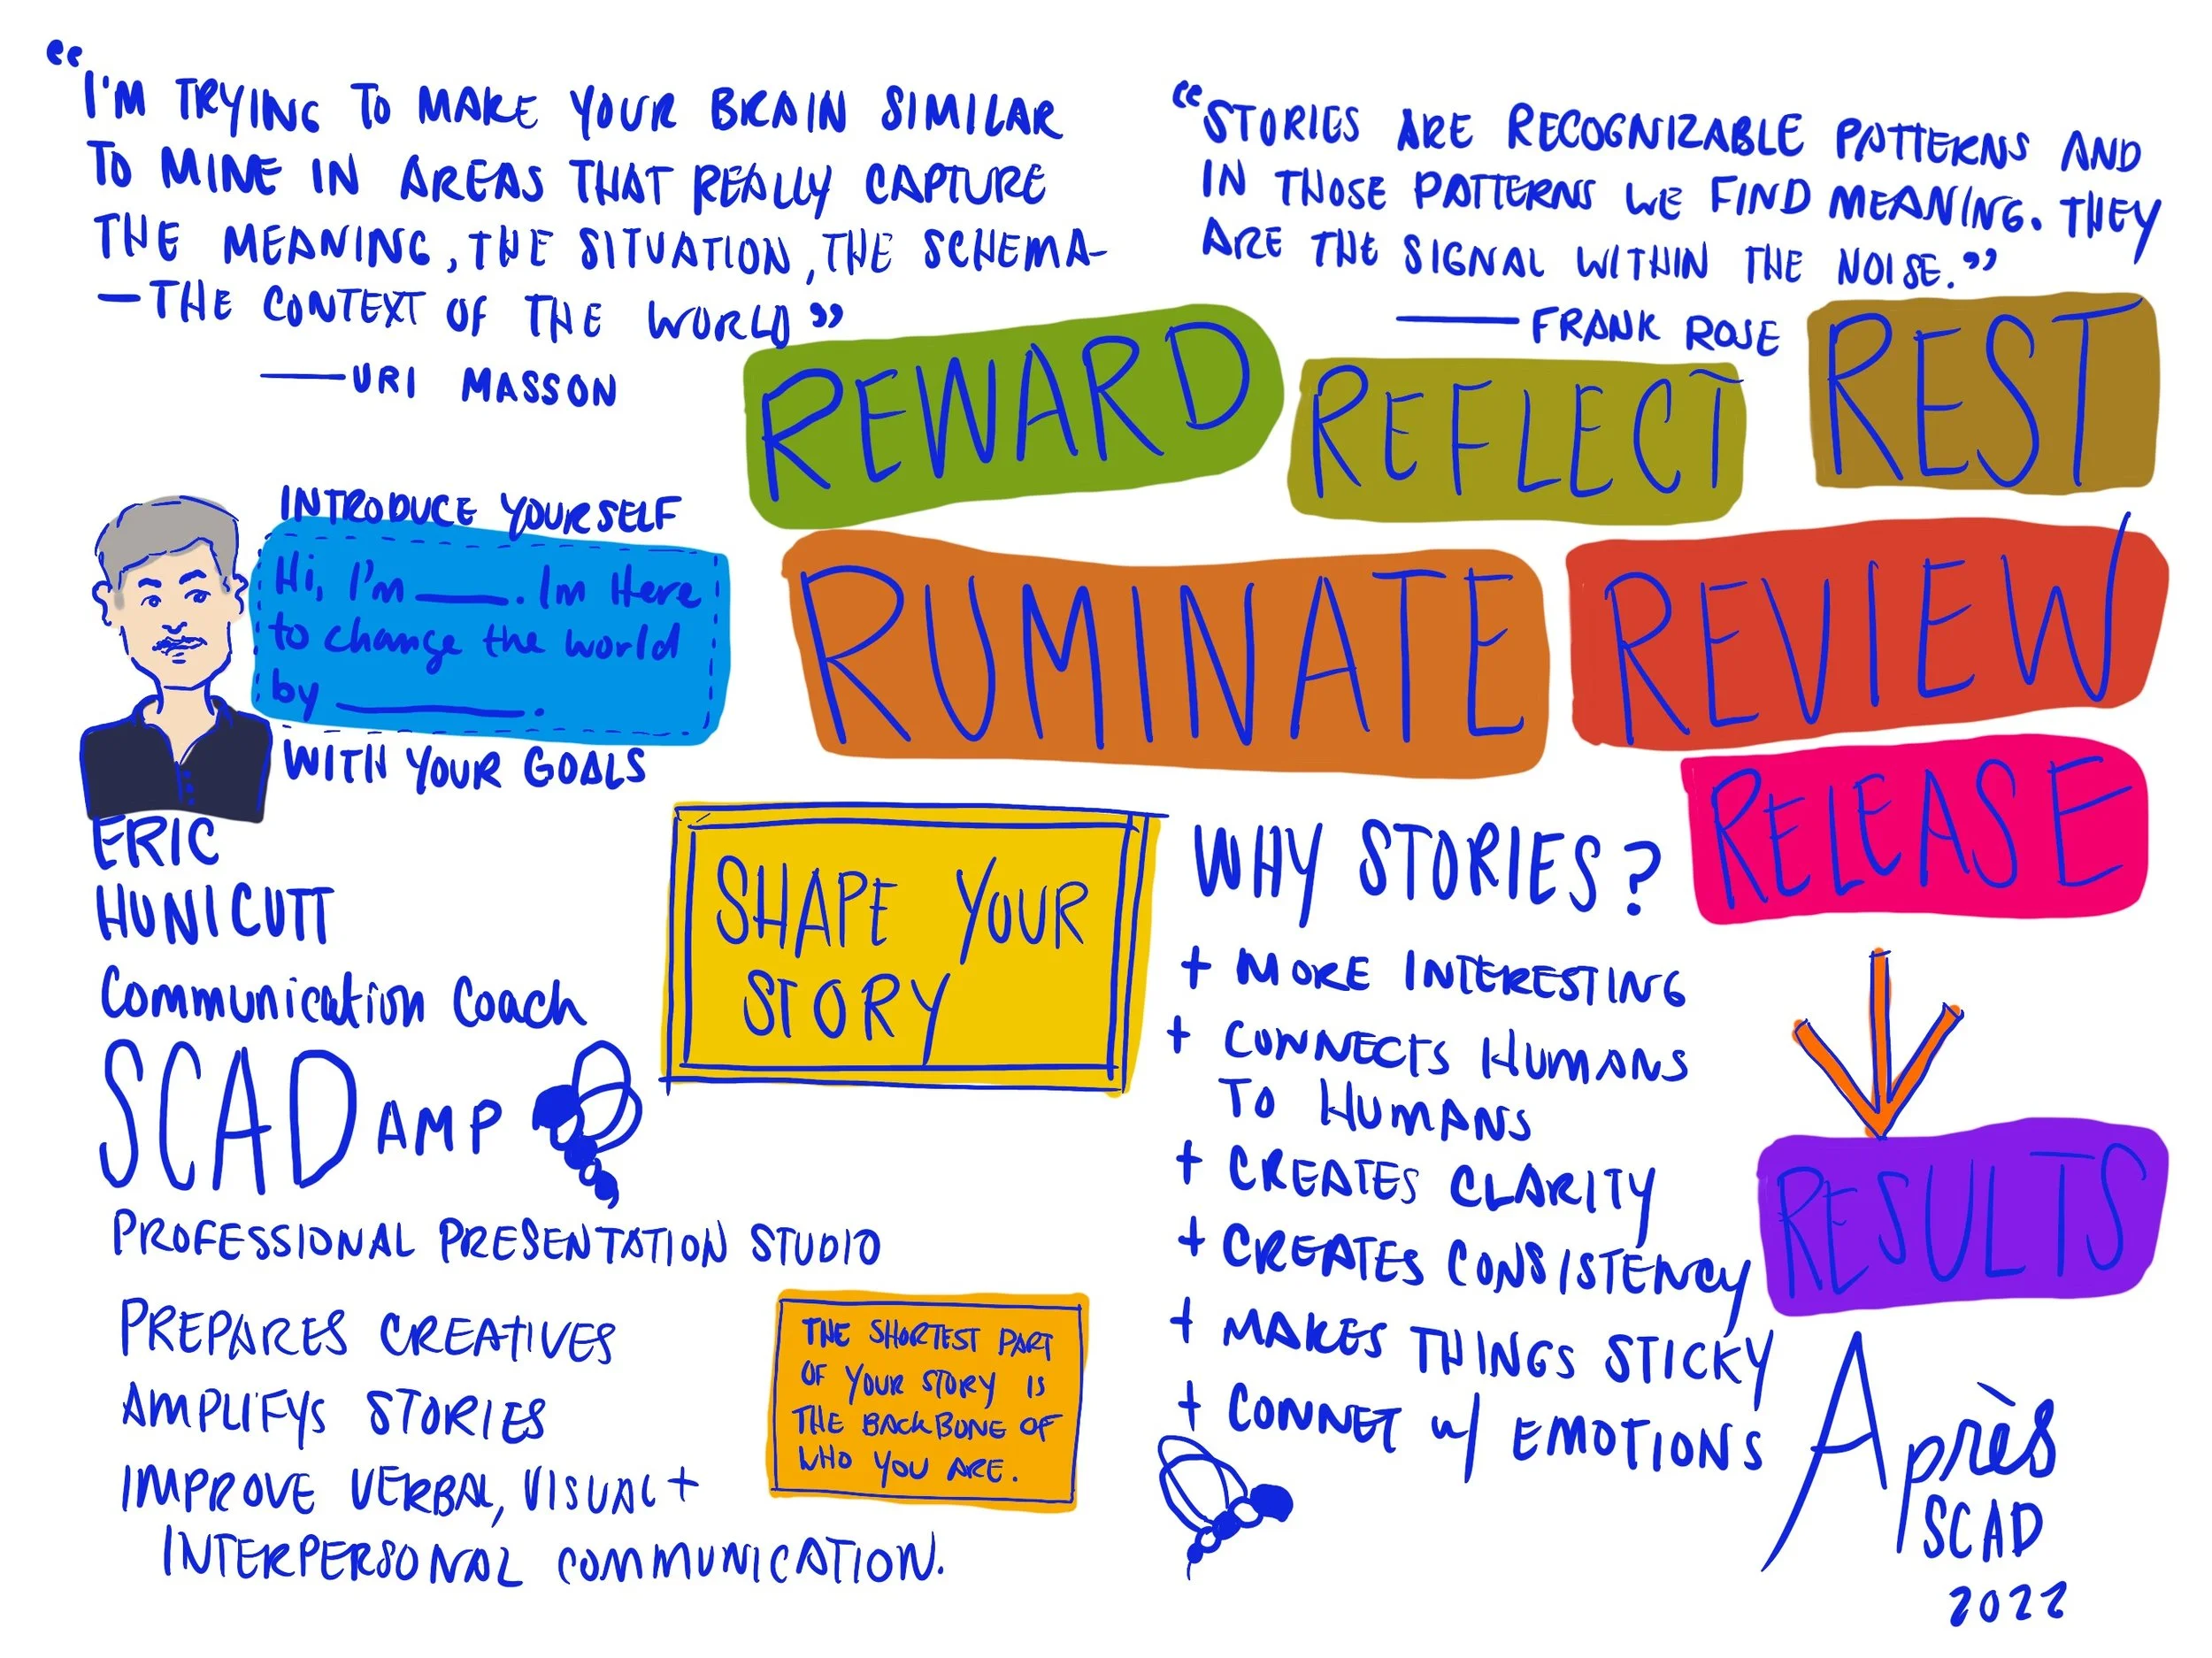 “I'M TRYING TO MAKE YOUR BRAIN SIMILAR
TO MINE IN AREAS THAT REALLY CAPTURE
THE MEANING, THE SITUATION, THE SCHEMA-
—THE CONTEXT OF THE WORLD”
—URI MASSON
“STORIES ARE RECOGNIZABLE PATTERNS AND
IN THOSE PATTERNS WE FIND MEANING. THEY
ARE THE SIGNAL WITHIN THE NOISE.”
—FRANK ROSE
REWARD
REFLECT
REST
RUMINATE
REVIEW
RELEASE
RESULTS
INTRODUCE YOURSELF
Hi, I'm ____. Im Here
to change the world
by ________.
WITH YOUR GOALS
ERIC
HUNICUTT
Communication Coach
SCAD AMP
PROFESSIONAL PRESENTATION STUDIO
PREPARES CREATIVES
AMPLIFYS STORIES
IMPROVE VERBAL, VISUAL +
INTERPERSONAL COMMUNICATION.
SHAPE YOUR
STORY
THE SHORTEST PART
OF YOUR STORY IS
THE BACKBONE OF
WHO YOU ARE.
WHY STORIES?
+ MORE INTERESTING
+ CONNECTS HUMANS
TO HUMANS
+ CREATES CLARITY
+ CREATES CONSISTENCY
+ MAKES THINGS STICKY
+ CONNET w/ EMOTIONS
Après
SCAD
2022